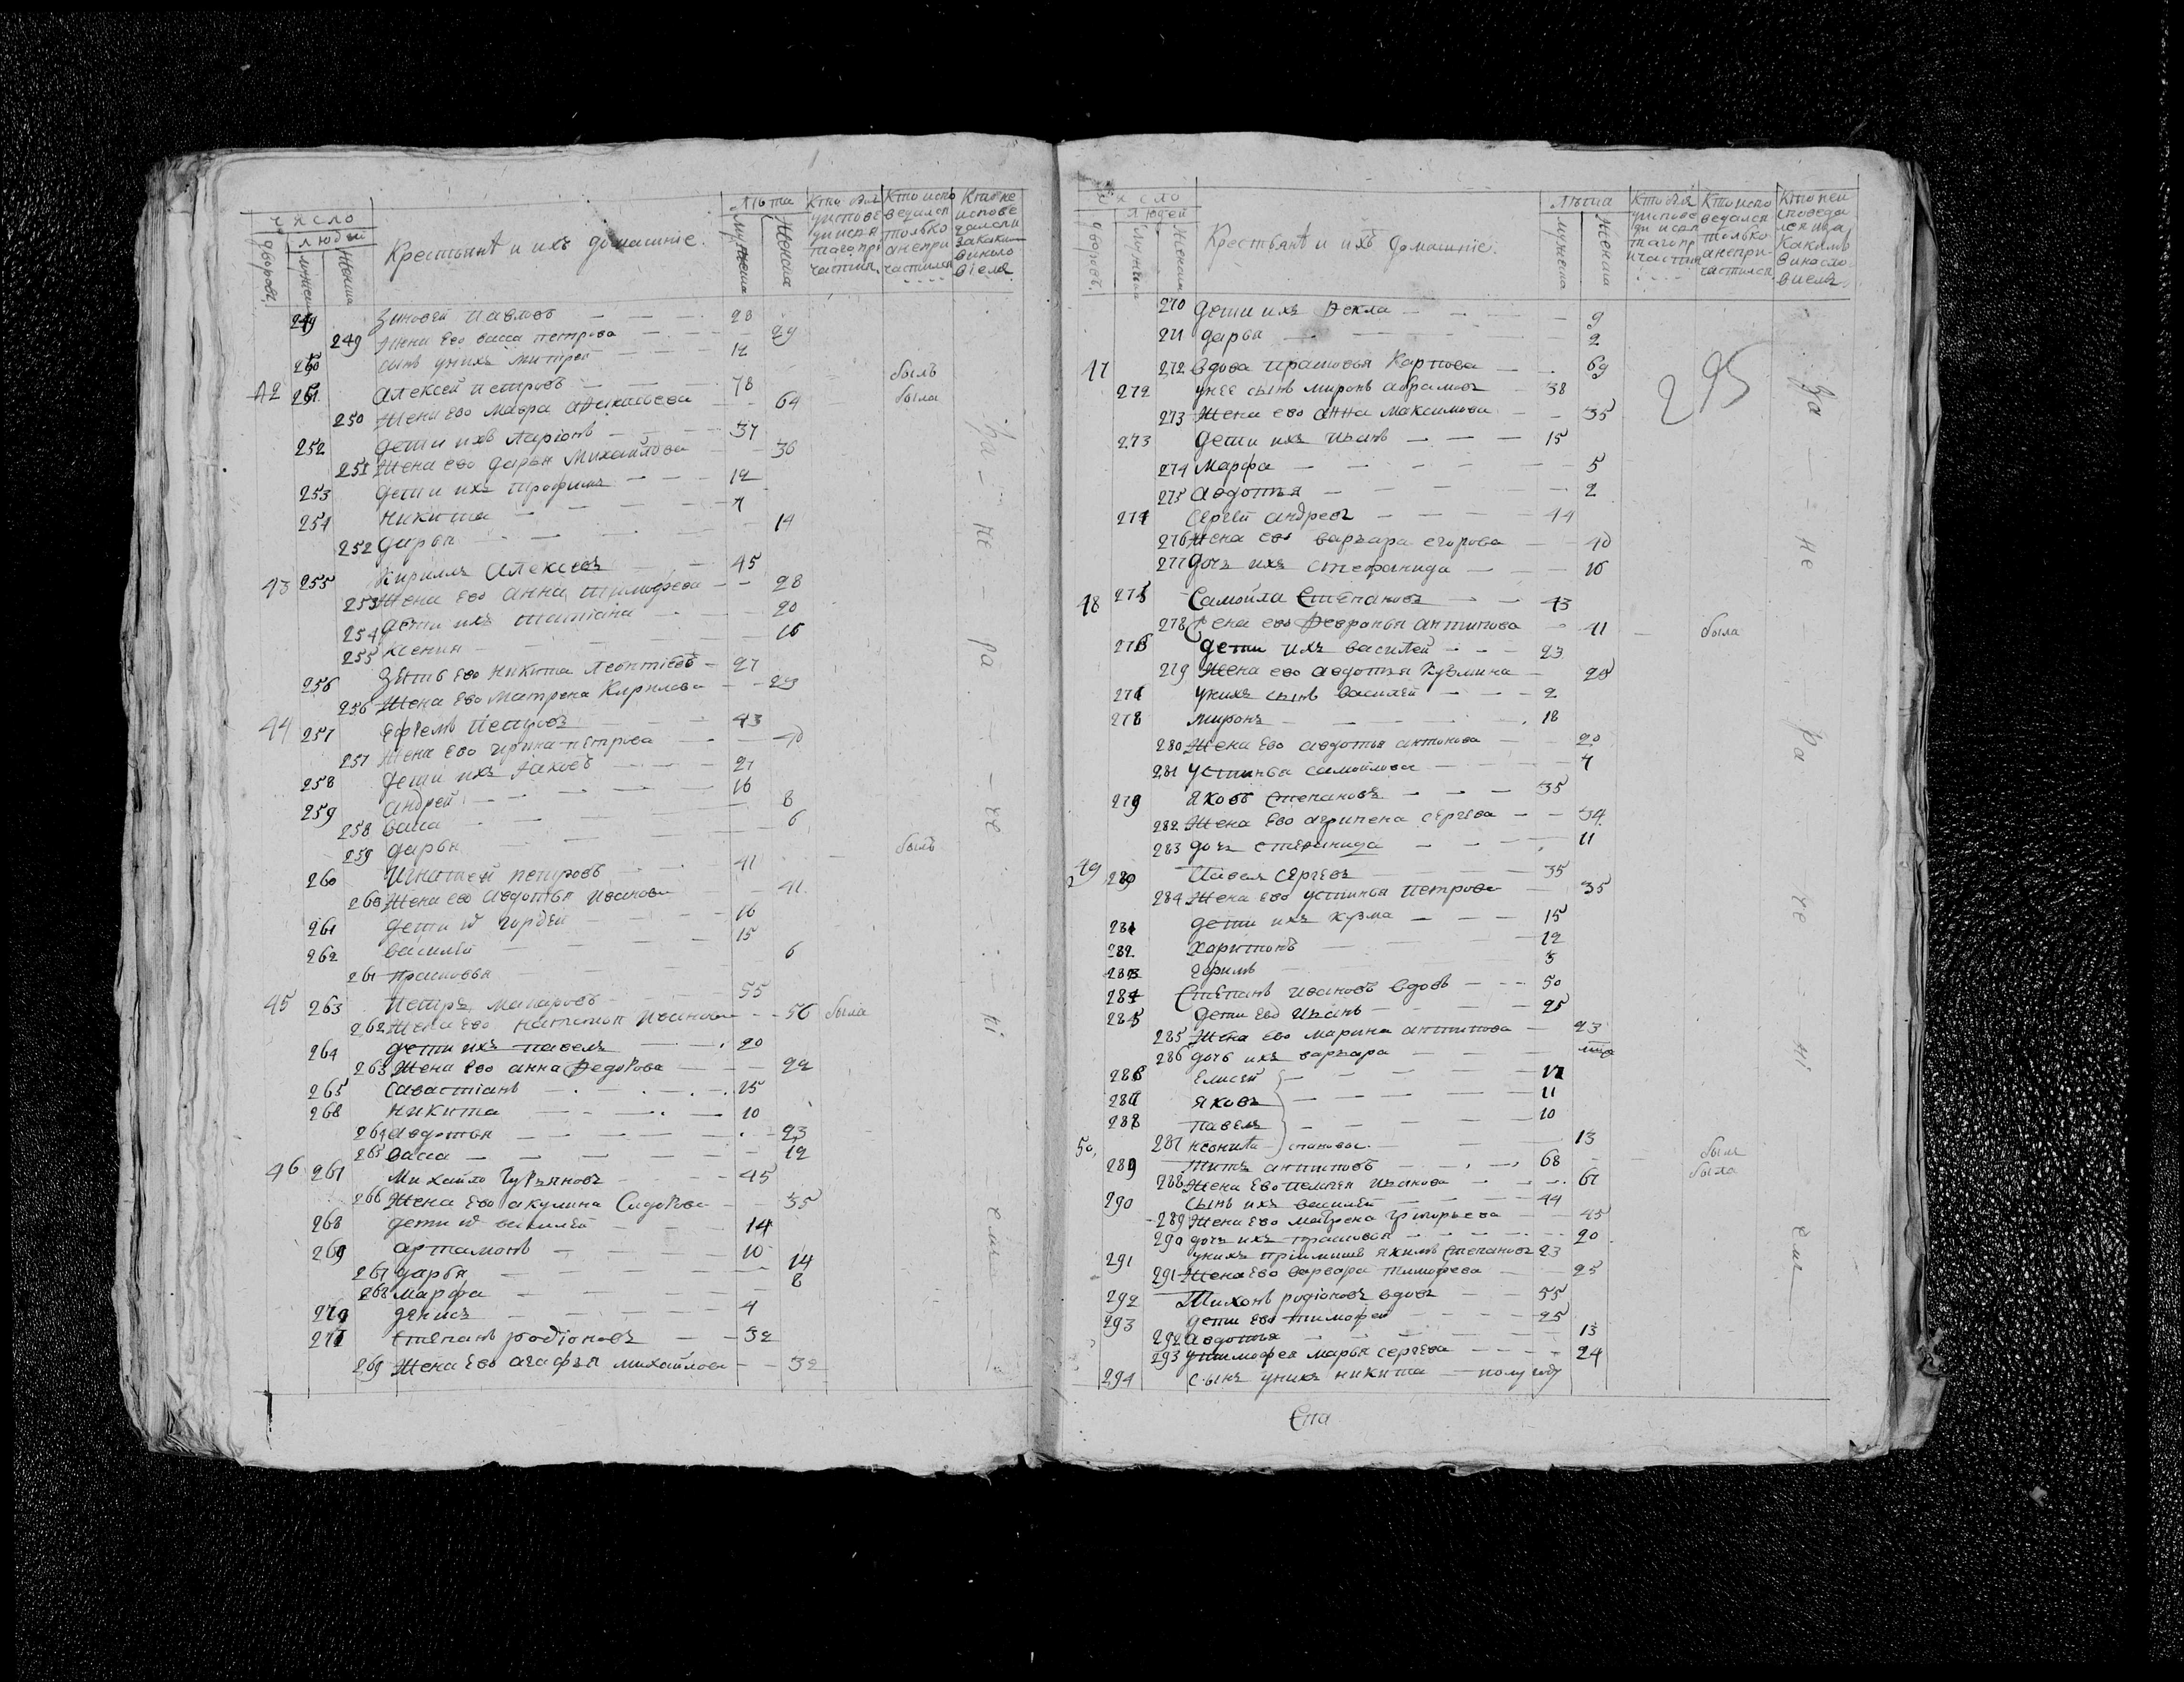 число
людей
дворовъ
мужеска
женска
Крестьянѣ и ихъ домашнiе.
лѣта
мужеска
женска
Кто исповедался только а не причастился
249 Зиновей Павловъ 28
249 жена ево васса петрова 29
250 сынъ унихъ митрей 12
42 251 Алексей петровъ 78 былъ
250 жена ево мавра 64 была
252 дети ихъ Ларiонъ 37
251 жена ево дарья михайлова 36
253 дети ихъ трофимъ 12
254 никита 4
252 дарья 14
43 255 Кирилъ Алексеевъ 45
253 жена ево анна тимофеева 28
254 дети ихъ татiана 20
255 ксения 16
256 зять ево никита Леонтiевъ 27
256 жена ево матрена Кирилова 29
44 257 Ефремъ Петровъ 43
257 жена ево ирина петрова 40
258 дети ихъ Иаковъ 27
259 андрей 16
258 васа 8
259 дарья 6
260 Игнатей петровъ 41 былъ
260 жена ево авдотья Иванова 41
261 дети гордей 16
262 василей 15
261 прасковья 6
45 263 Петръ макаровъ 55
262 жена ево наталья Иванова 56 была
264 дети ихъ павелъ 20
263 жена ево анна Федорова 22
265 савастiанъ 15
268 никита 10
264 авдотья 23
265 васса 12
46 267 Михайло Гурьяновъ 45
266 жена ево акулина Сидорова 35
268 дети василей 14
269 артамонъ 10
267 дарья 14
268 марфа 8
270 денисъ 4
271 Степанъ родiоновъ 32
269 жена ево агафья михайлова 32
за нерачениемъ
число
людей
дворовъ
мужеска
женска
Крестьянѣ и ихъ домашнiе.
лѣта
мужеска
женска
270 дети ихъ Фекла 9
271 дарья 2
295
47 272 вдова прасковья Карпова 69
272 унее сынъ миронъ абрамовъ 38
273 жена ево анна максимова 35
273 дети ихъ иванъ 15
274 марфа 5
275 авдотья 2
274 сергей андреевъ 44
276 жена ево варвара егорова 40
277 дочь ихъ стефанида 16
48 275 Самойла Степановъ 43
278 жена ево Февронья антипова 41 была
276 дети ихъ василей 23
279 жена ево авдотья кузмина 20
277 унихъ сынъ василей 2
278 миронъ 18
280 жена ево авдотья антонова 20
281 устинья самойлова 4
279 яковъ степановъ 35
282 жена ево агрипена сергева 34
283 дочь стефанида 11
49 280 Павелъ сергевъ 35
284 жена ево устинья петрова 35
281 дети ихъ кузма 15
282 харитонъ 12
283 ефимъ 3
284 Степанъ ивановъ вдовъ 50
285 дети ево иванъ 25
285 жена ево марина антипова 23
286 дочь ихъ варвара
286 Елисей
287 яковъ 11
288 павелъ 10
50 287 13
289 Титъ антиповъ 68 былъ
288 жена ево пелагея иванова 67 была
290 сынъ ихъ василей 44
289 жена ево матрена григорьева 45
290 дочь ихъ прасковья 20
291 унихъ прiимышъ якимъ степановъ 23
291 жена ево варвара тимофеева 25
292 Тихонъ родiоновъ вдовъ 55
293 дети ево тимофей 25
292 авдотья 13
293 утимофея марья сергева 24
294 сынъ унихъ никита полугоду
за нерачениемъ
Спа